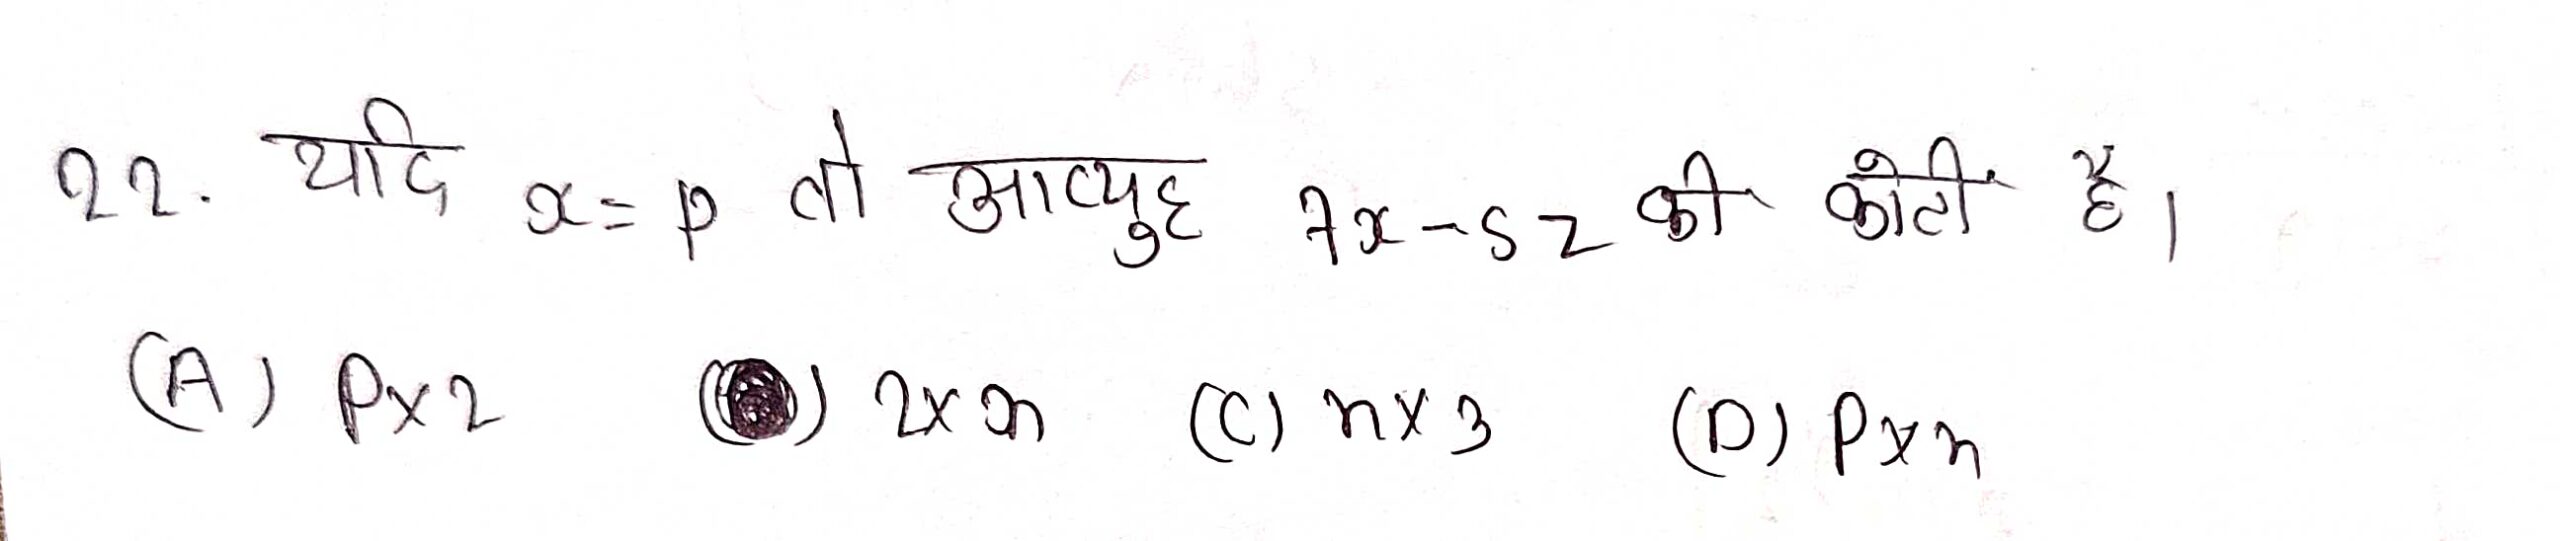 22. यदि x = p तो आव्युह 7x - 5z की कोटी है।
(A) P×2 (B) 2×n (C) n×3 (D) P×n